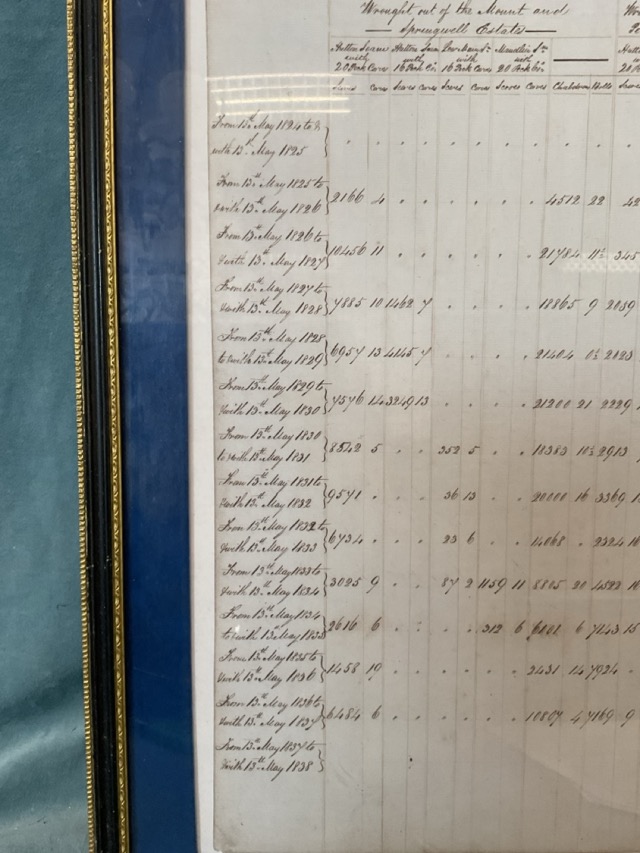 Wrought out of the Mount and
Springwell Estates
Hutton Seam Hutton Seam Low Main Sm Maudlin Sm
with with with with
20 Peck Corves 16 Peck Cvs 16 Peck Corves 20 Peck Cvs
Scores Corves Scores Corves Scores Corves Scores Corves Chaldrons Bolls Scores
From 13th May 1824 to &
with 13th May 1825
From 13th May 1825 to
with 13th May 1826 2166 4 4512 22 42
From 13th May 1826 to
with 13th May 1827 10456 11 21784 11½ 345
From 13th May 1827 to
with 13th May 1828 7885 10 1462 7 18865 9 2039
From 13th May 1828
to with 13th May 1829 6957 13 4145 7 21404 0½ 2123
From 13th May 1829 to
with 13th May 1830 7576 14 3249 13 21200 21 2229
From 13th May 1830
to with 13th May 1831 8542 5 352 5 18383 10½ 2913
From 13th May 1831 to
with 13th May 1832 9571 36 13 20000 16 3369
From 13th May 1832 to
with 13th May 1833 6734 23 6 14068 2324
From 13th May 1833 to
with 13th May 1834 3025 9 87 2 1159 11 8805 20 4522
From 13th May 1834
to with 13th May 1835 2616 6 312 6 6 7243 15
From 13th May 1835 to
with 13th May 1836 1458 19 2431 14 7924
From 13th May 1836 to
with 13th May 1837 6484 6 10807 4 7169 9
From 13th May 1837 to
with 13th May 1838